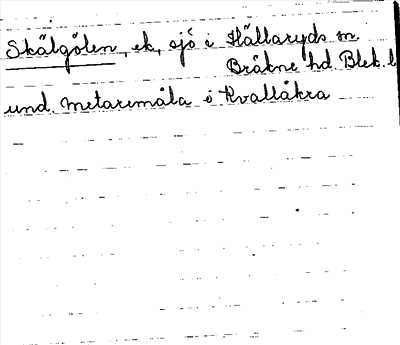 Skälgölen, ek, sjö i Hällaryds sn.
Bräkne hd. Blek. l
und. Metaremåla o Kvallåkra